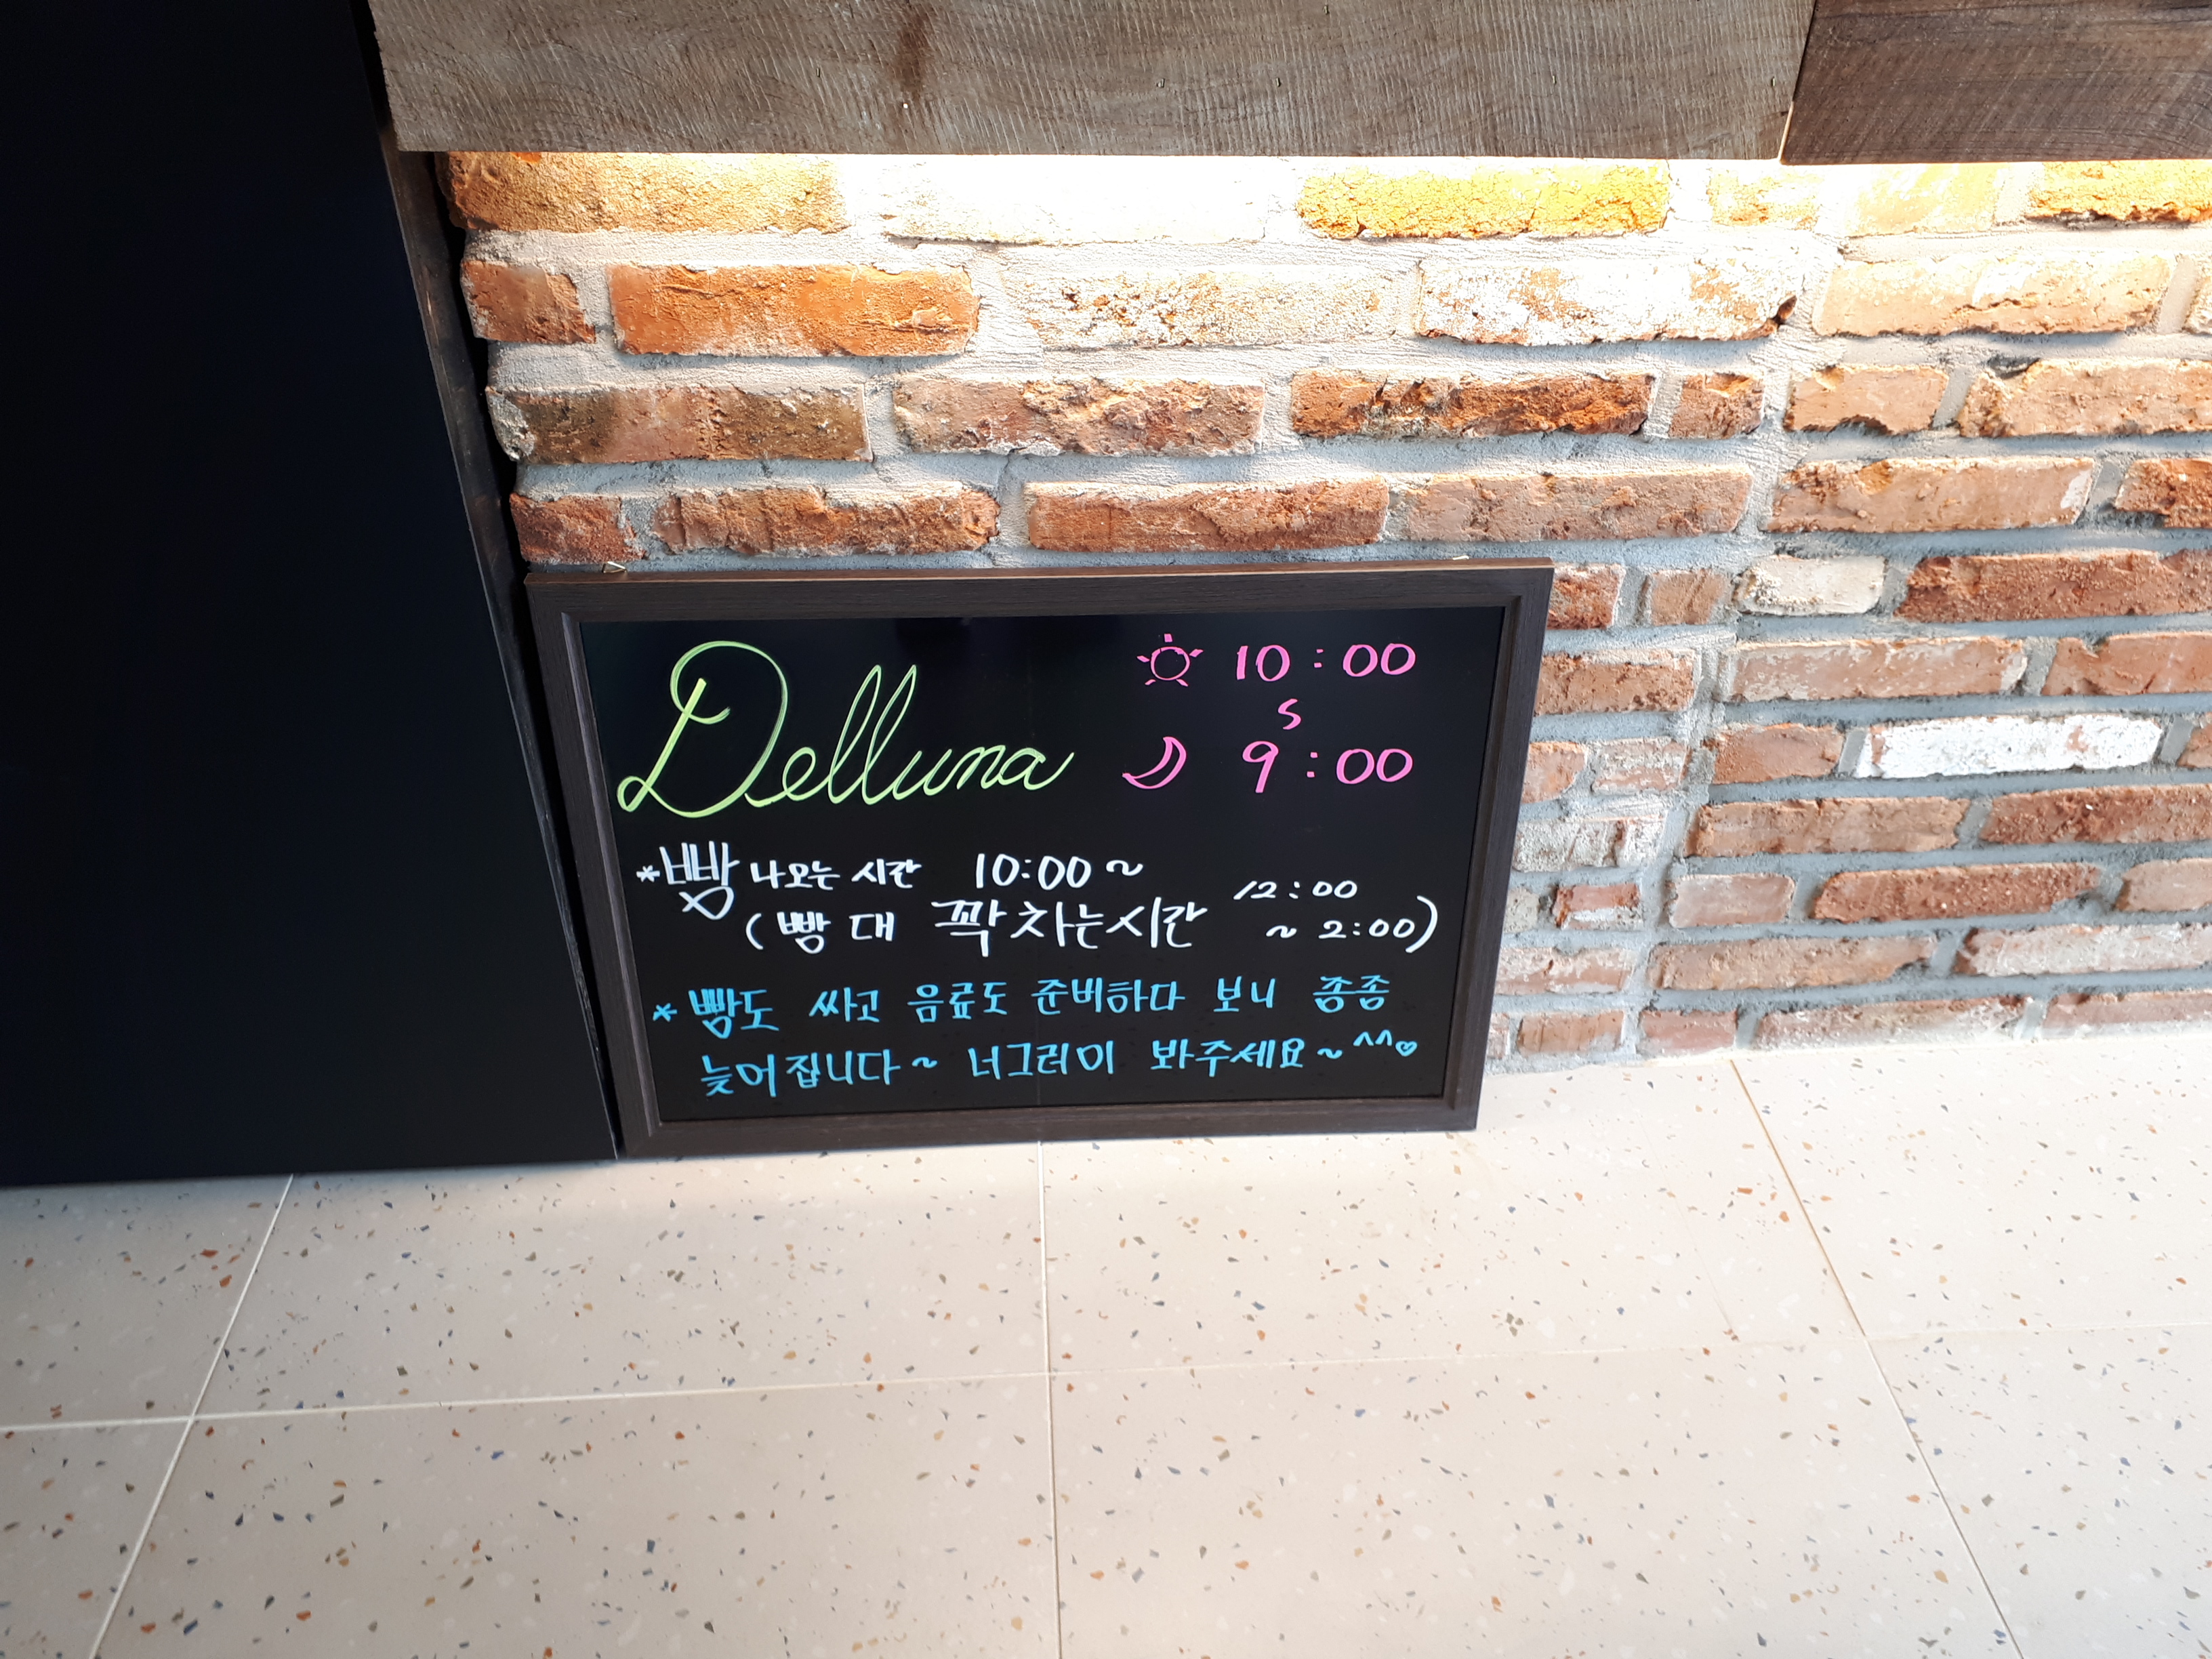 Delluna
10:00
~
9:00
*빵 나오는 시간 10:00~
(빵 대 꽉차는시간 12:00
~ 2:00)
*빵도 싸고 음료도 준비하다 보니 종종
늦어집니다~ 너그러이 봐주세요~^^♡